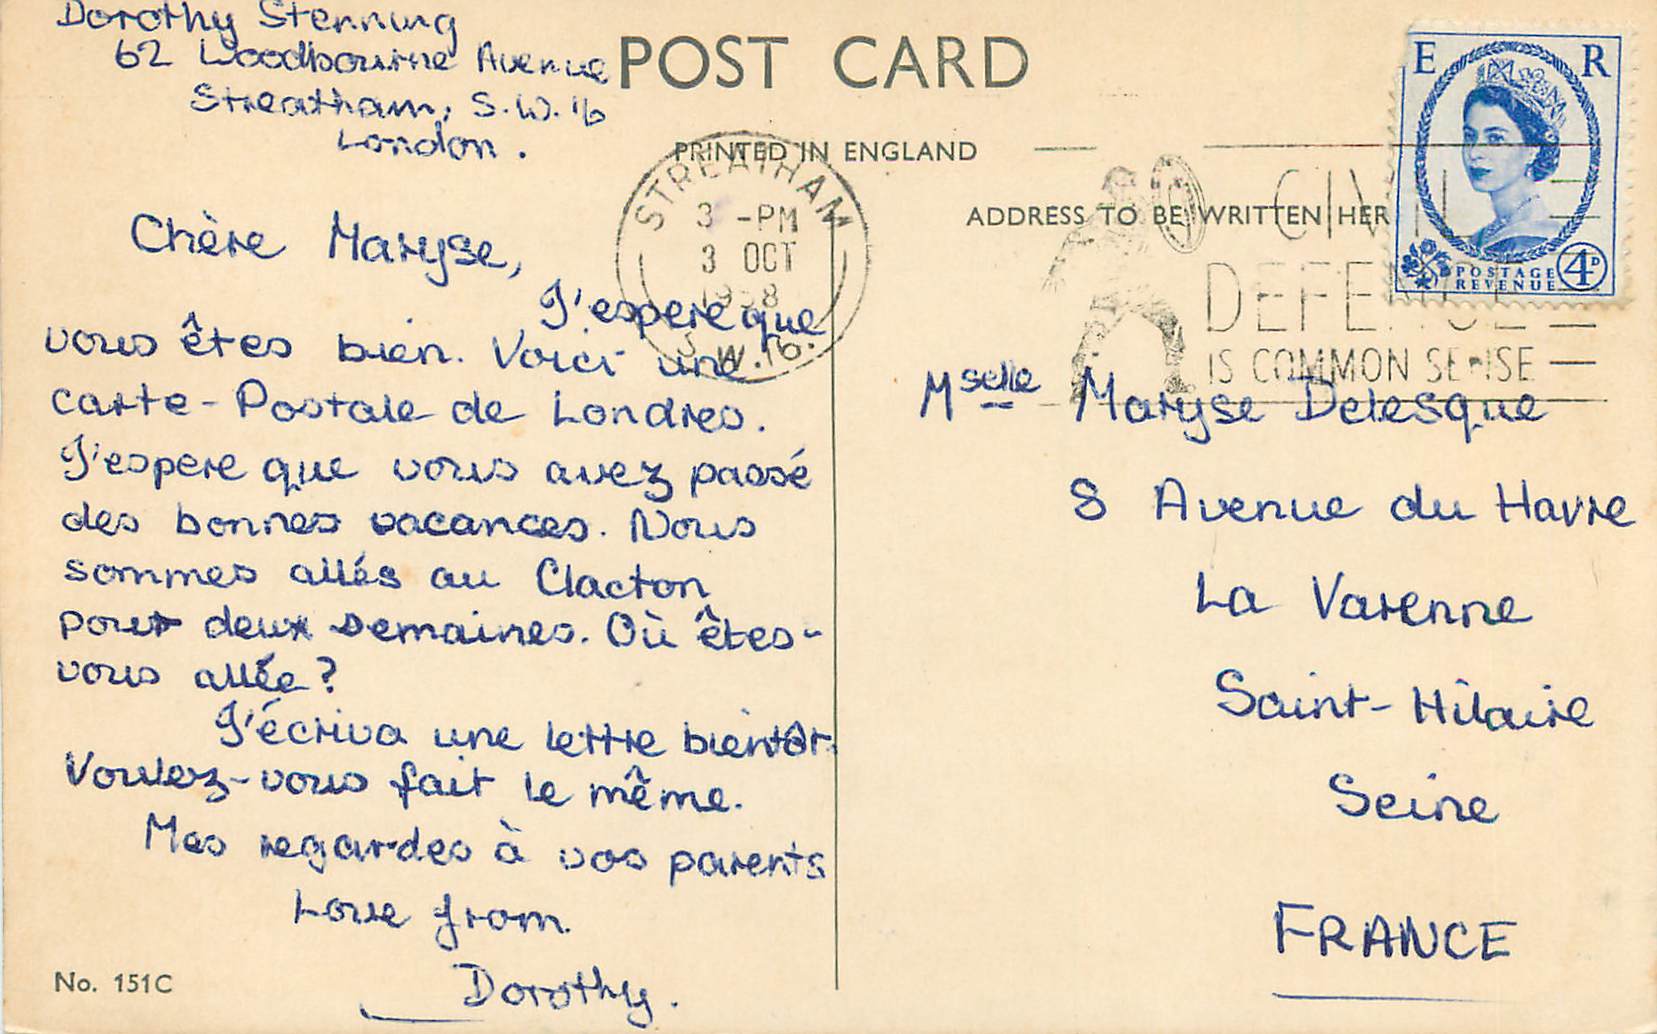 Dorothy Stenning
62 Woodbourne Avenue
Streatham, S.W.16
London.
POST CARD
PRINTED IN ENGLAND
ADDRESS TO BE WRITTEN HER
E R
POSTAGE
REVENUE
4D
STREATHAM
3 -PM
3 OCT
1958
S.W.16.
CIVIL
DEFENCE
IS COMMON SENSE
Chère Maryse,
J'espere que
vous êtes bien. Voici une
carte-Postale de Londres.
J'espere que vous avez passé
des bonnes vacances. Nous
sommes allés au Clacton
pour deux semaines. Où êtes-
vous allée?
J'écriva une lettre bientôt.
Voulez-vous fait le même.
Mes regardes à vos parents
Love from
Dorothy.
No. 151C
Mselle Maryse Delesque
8 Avenue du Havre
La Varenne
Saint-Hilaire
Seine
FRANCE